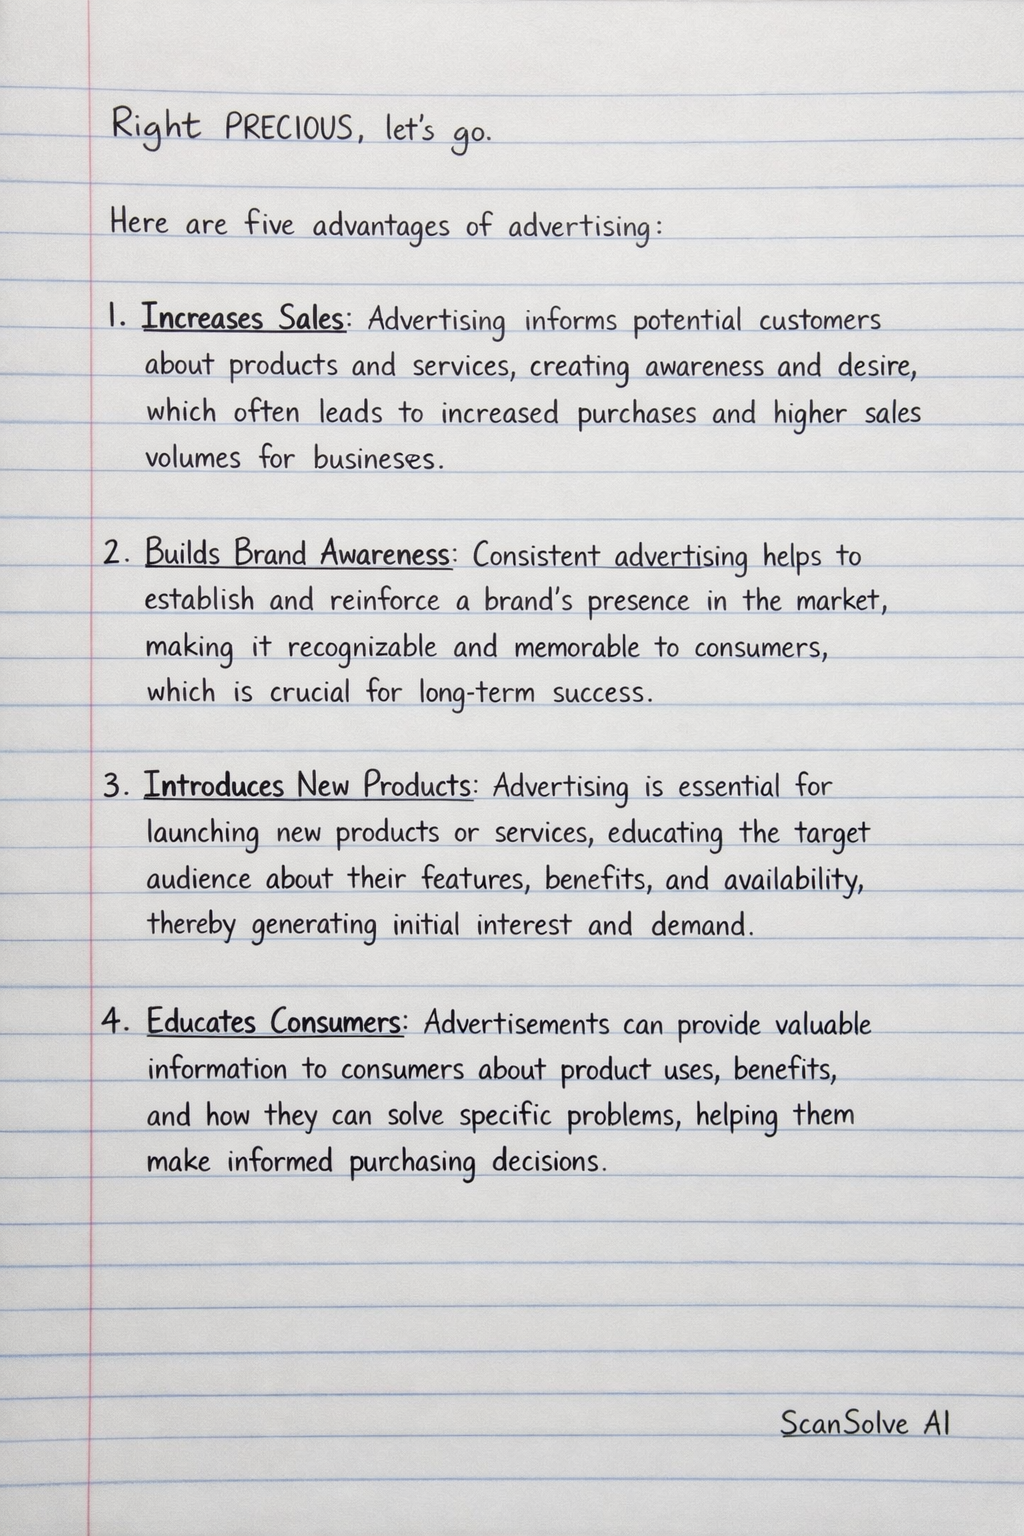 Right PRECIOUS, let's go.
Here are five advantages of advertising:
1. Increases Sales: Advertising informs potential customers
about products and services, creating awareness and desire,
which often leads to increased purchases and higher sales
volumes for busineses.
2. Builds Brand Awareness: Consistent advertising helps to
establish and reinforce a brand's presence in the market,
making it recognizable and memorable to consumers,
which is crucial for long-term success.
3. Introduces New Products: Advertising is essential for
launching new products or services, educating the target
audience about their features, benefits, and availability,
thereby generating initial interest and demand.
4. Educates Consumers: Advertisements can provide valuable
information to consumers about product uses, benefits,
and how they can solve specific problems, helping them
make informed purchasing decisions.
ScanSolve AI